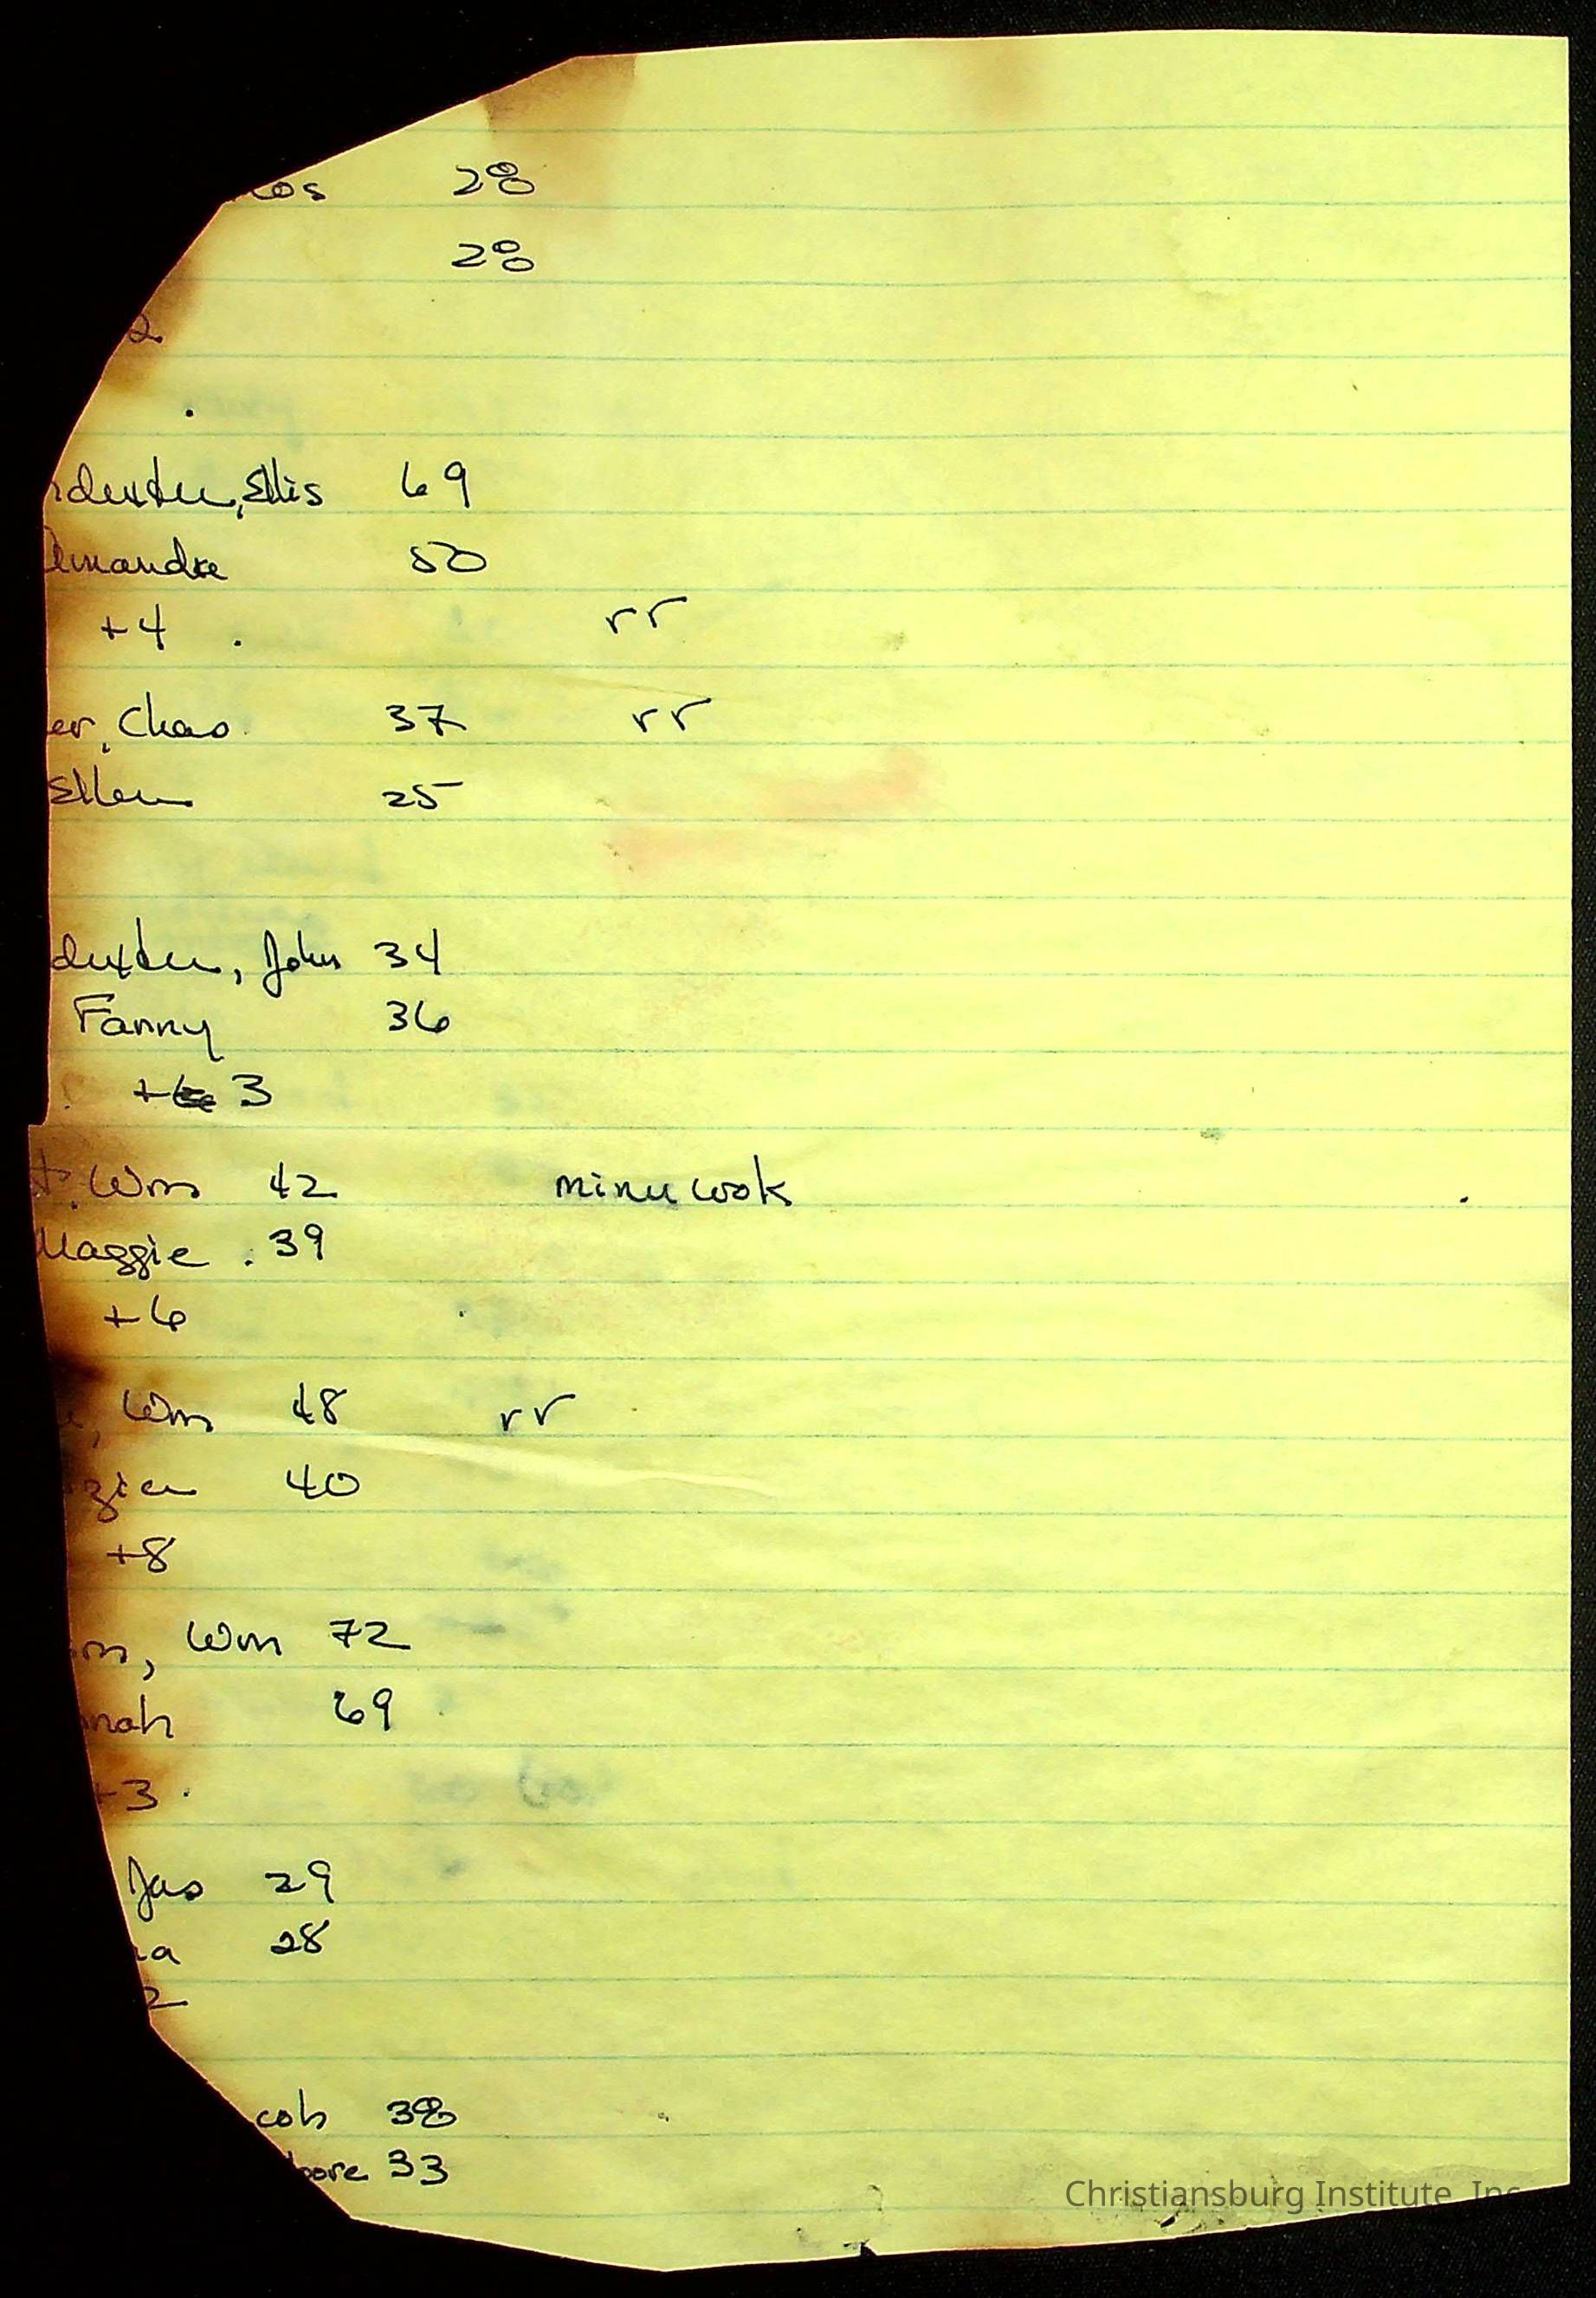 28
28
2
Ellis 69
Amandra 50
+4 rr
er, Chas 37 rr
Ellen 25
dexter, John 34
Fanny 36
+6 3
t. Wm 42 mine work
Maggie . 39
+6
, Wm 48 rr
40
+8
m, Wm 72
nnah 69
+3
Jas 29
na 28
2
cob 38
oore 33
Christiansburg Institute, Inc